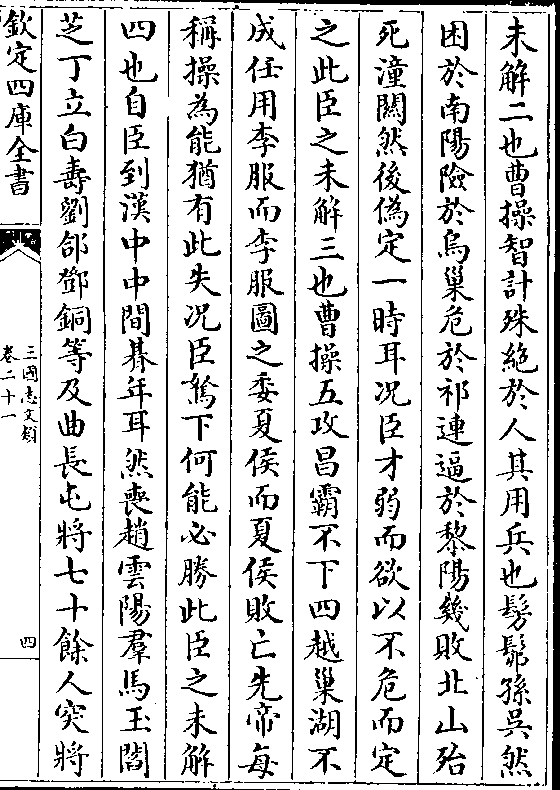 未解二也曹操智計殊絶於人其用兵也髣髴孫吳然
困於南陽險於烏巢危於祁連逼於黎陽幾敗北山殆
死潼關然後偽定一時耳况臣才弱而欲以不危而定
之此臣之未解三也曹操五攻昌霸不下四越巢湖不
成任用李服而李服圖之委夏侯而夏侯敗亡先帝每
稱操為能猶有此失况臣駑下何能必勝此臣之未解
四也自臣到漢中中間朞年耳然喪趙雲陽羣馬玉閻
芝丁立白壽劉郃鄧銅等及曲長屯將七十餘人突將
欽定四庫全書
三國志文類
卷二十一
四